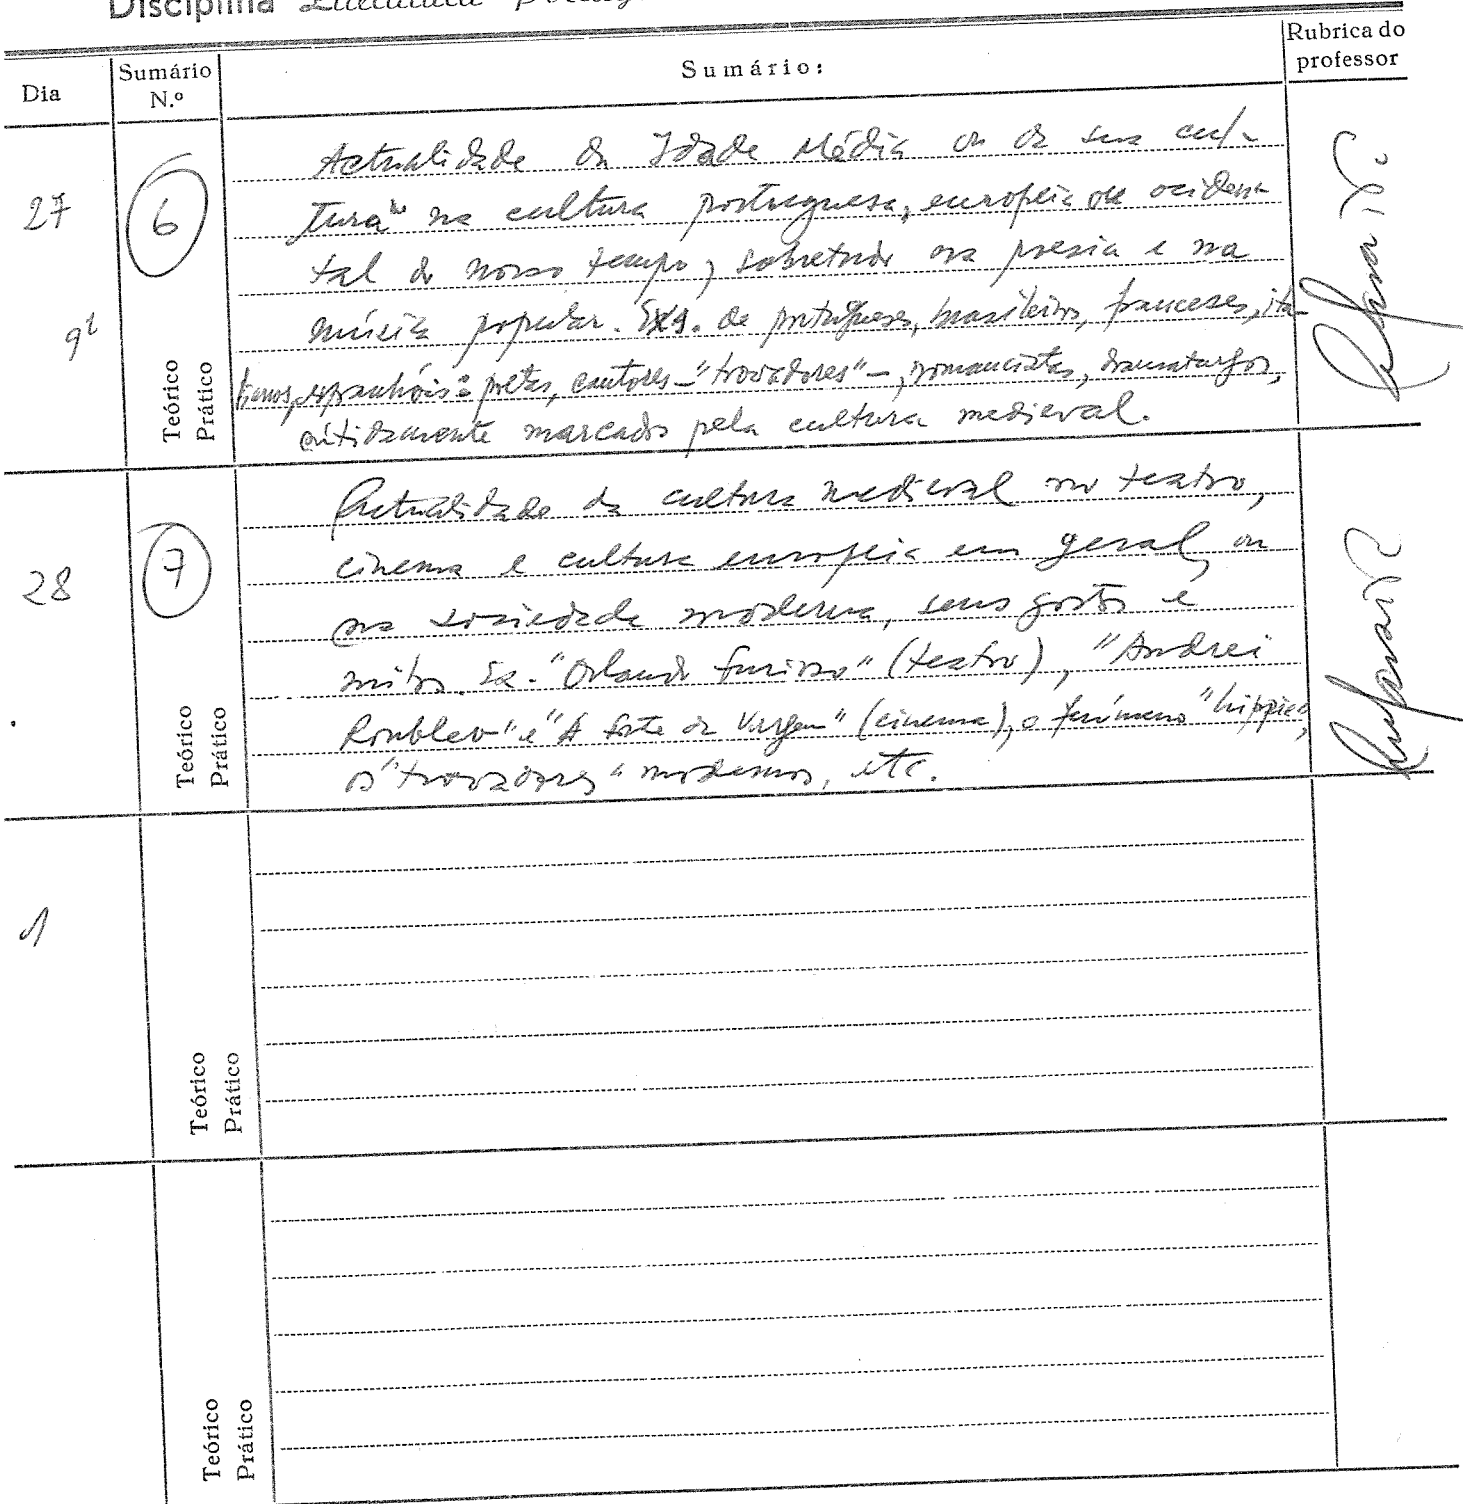 Disciplina Literatura
Dia
Sumário N.º
Sumário:
Rubrica do professor
27
6
Actualidade da Idade Média ou da sua cul-
tura na cultura portuguesa, europeia ou ociden-
tal do nosso tempo, sobretudo na poesia e na
música popular. Exs. de portugueses, brasileiros, franceses, ita-
lianos, espanhóis: poetas, cantores – "trovadores" –, romancistas, dramaturgos,
nitidamente marcados pela cultura medieval.
Teórico
Prático
28
7
Actualidade da cultura medieval no teatro,
cinema e cultura europeia em geral, ou
na sociedade moderna, seus gostos e
mitos. Ex. "Orlando furioso" (teatro), "Andrei
Roublev" e "A fonte da Virgem" (cinema), o fenómeno "hippie",
os "trovadores" modernos, etc.
Teórico
Prático
1
Teórico
Prático
Teórico
Prático